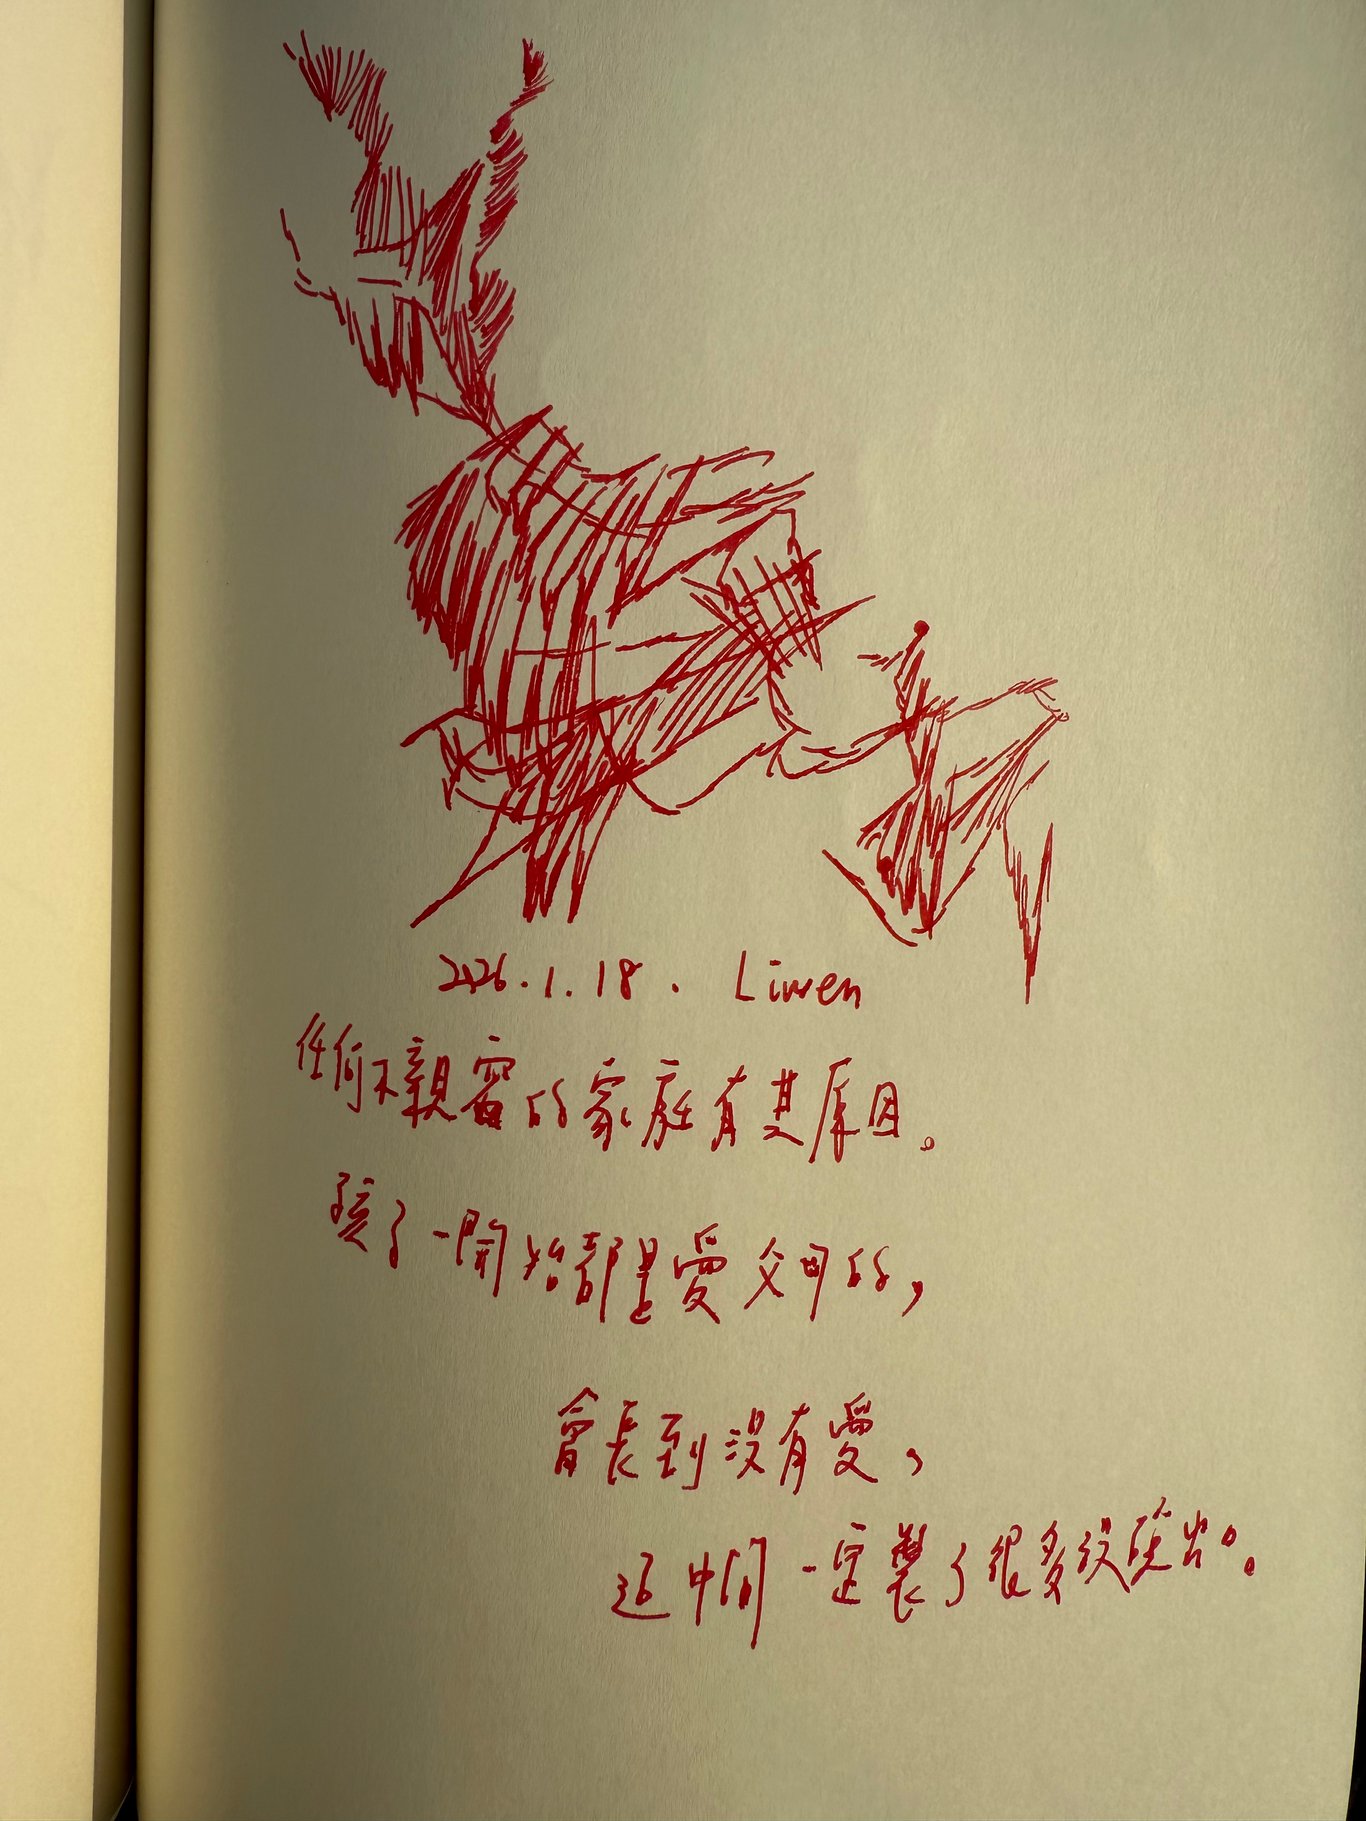 2026.1.18. Liwen
任何不親密的家庭有其原因。
孩子一開始都是愛父母的，
會長到沒有愛，
這中間一定裝了很多沒說出口。